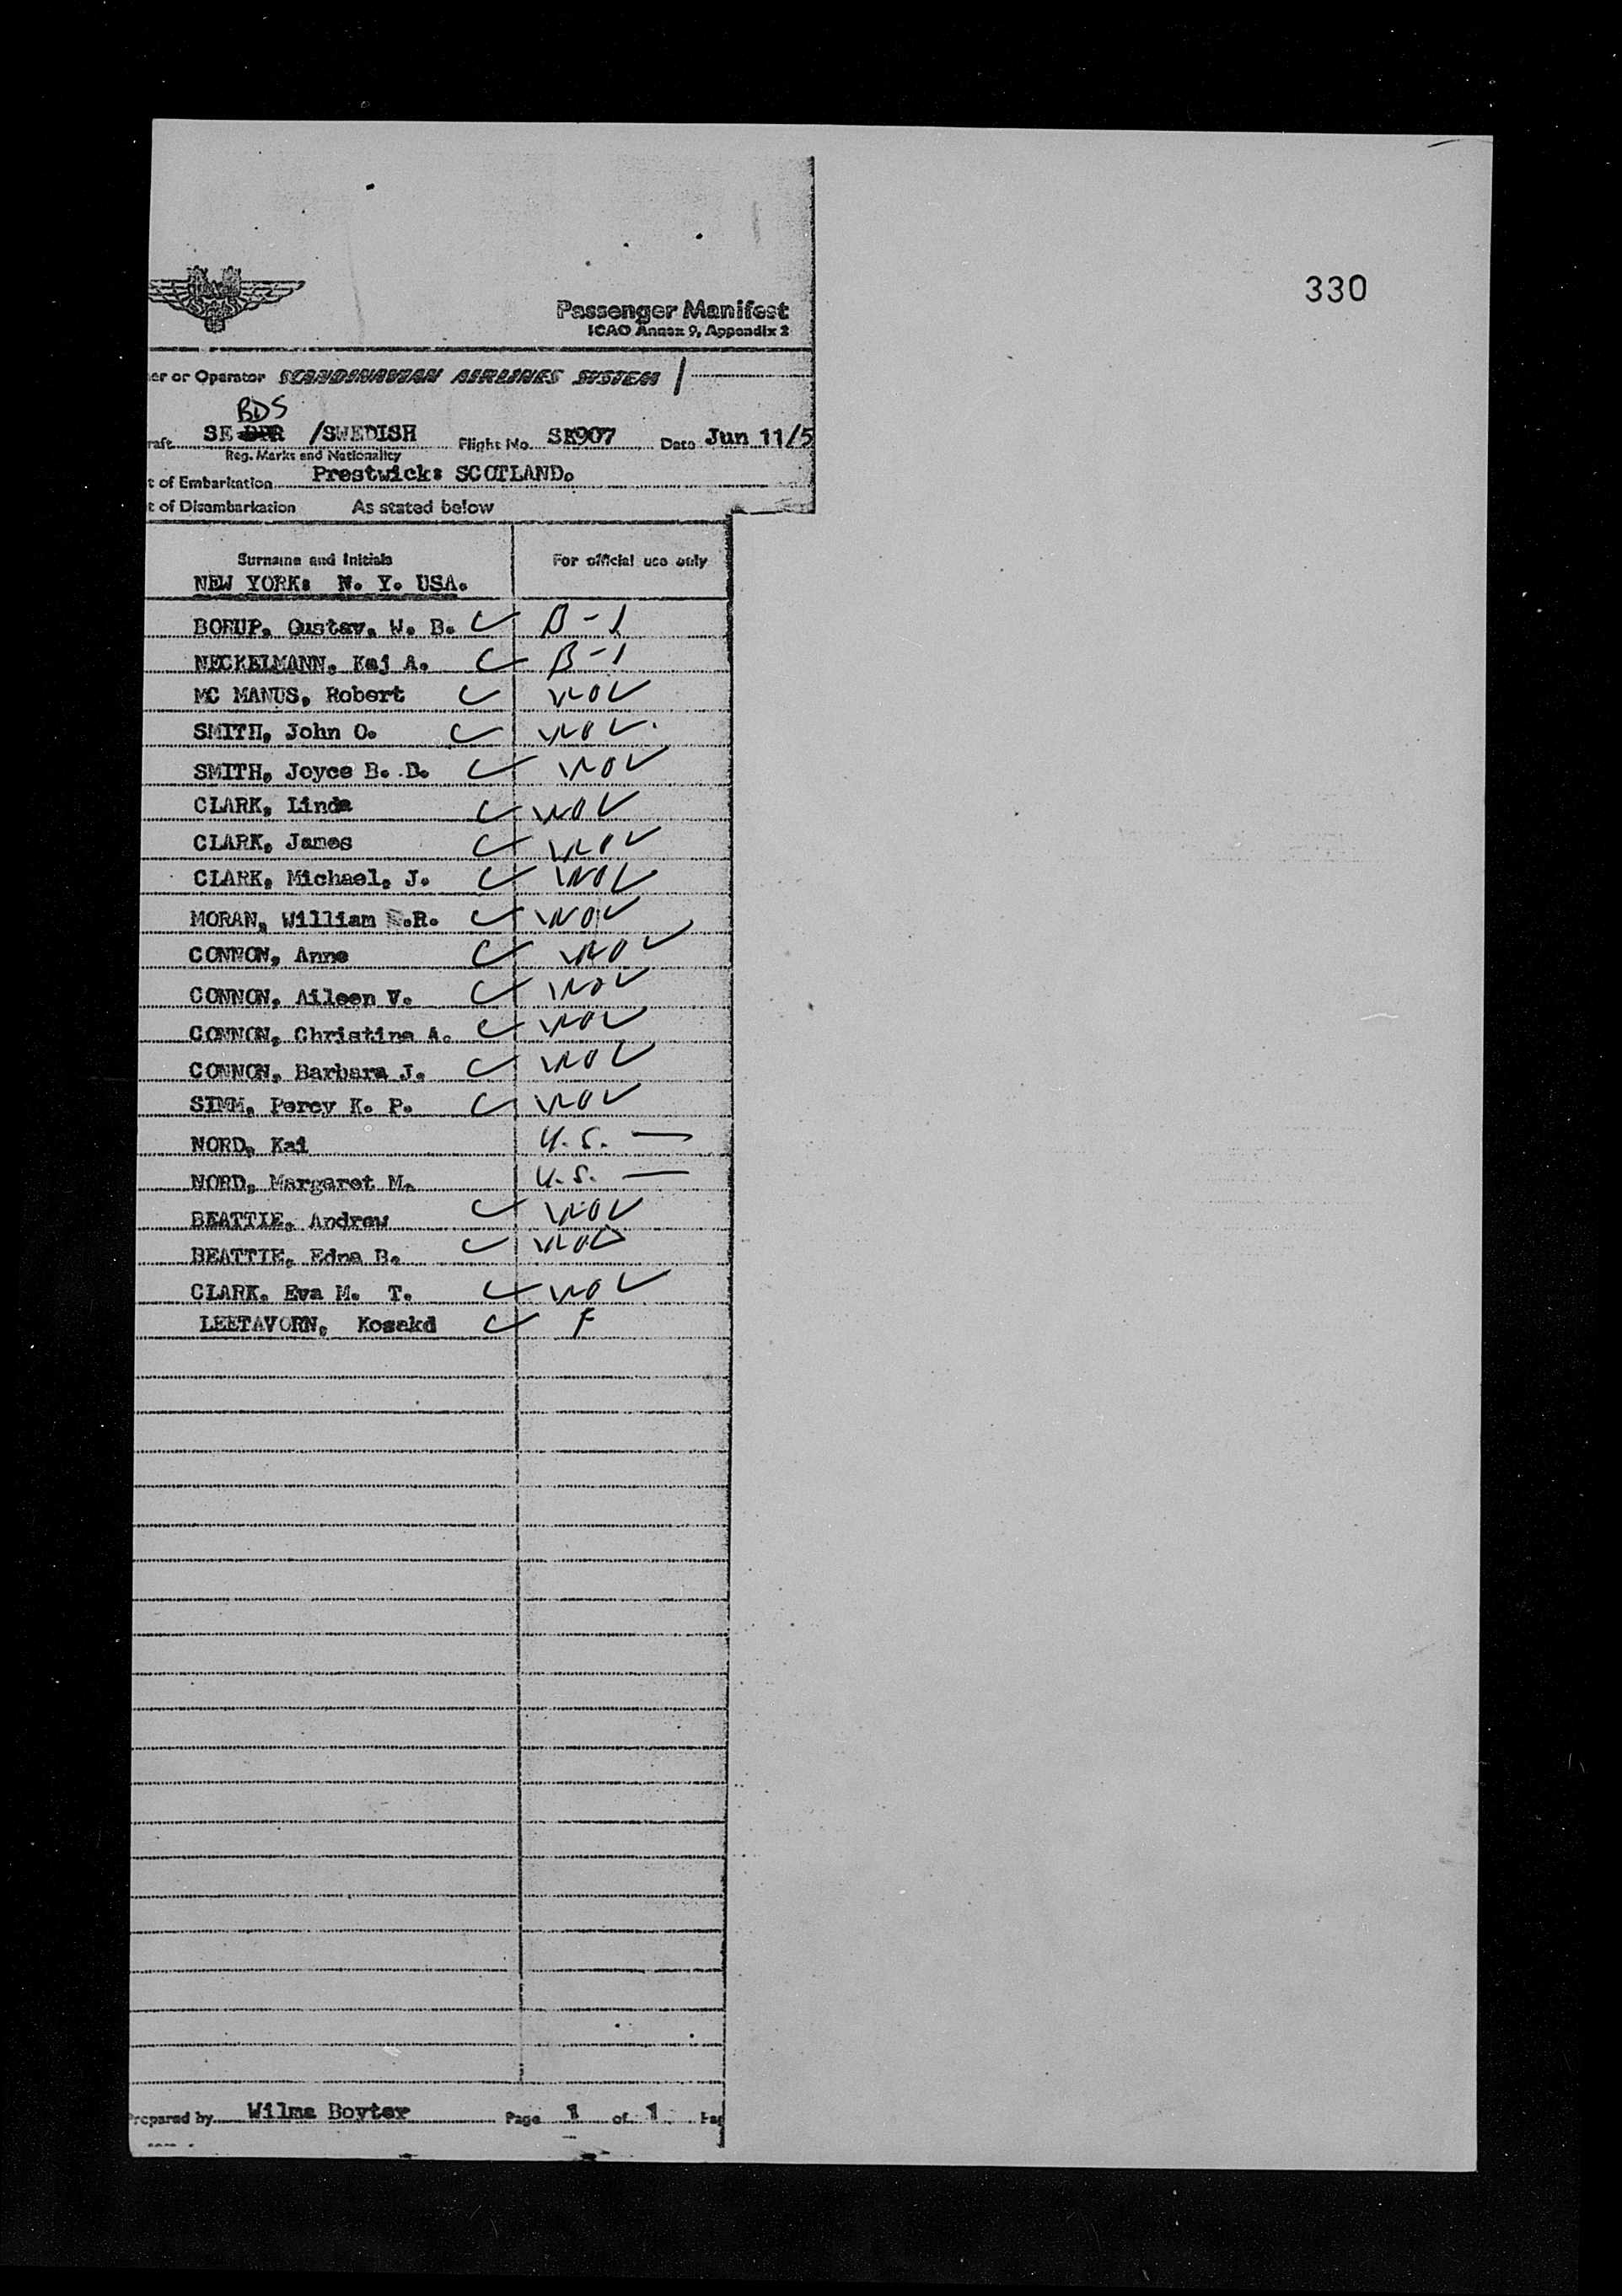 330
Passenger Manifest
ICAO Annex 9, Appendix 2
er or Operator SCANDINAVIAN AIRLINES SYSTEM
BDS
raft SE /SWEDISH Flight No. SK907 Date Jun 11/5
Reg. Marks and Nationality
t of Embarkation Prestwick: SCOTLAND.
t of Disembarkation As stated below
Surname and Initials For official use only
NEW YORK: N. Y. USA.
BORUP, Gustav, W. B. B-1
NECKELMANN, Kaj A. B-1
MC MANUS, Robert
SMITH, John O.
SMITH, Joyce B. D.
CLARK, Linda
CLARK, James
CLARK, Michael, J.
MORAN, William .R.
CONNON, Anne
CONNON, Aileen V.
CONNON, Christina A.
CONNON, Barbara J.
SIMM, Percy K. P.
NORD, Kai U.S. —
NORD, Margaret M. U.S. —
BEATTIE, Andrew
BEATTIE, Edna B.
CLARK, Eva M. T.
LEETAVORN, Kosakd F
Prepared by Wilma Boyter Page 1 of 1 Pag